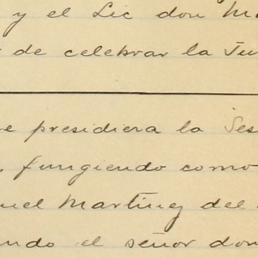 y el Lic don M
de celebrar la Jun
e presidiera la Ses
fungiendo como
uel Martinez del
ndo el señor don